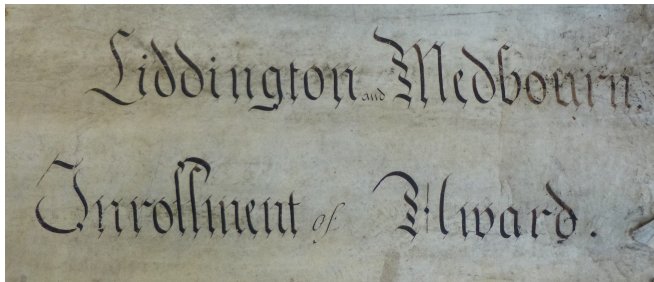 Liddington and Medbourn.
Inrollment of Award.